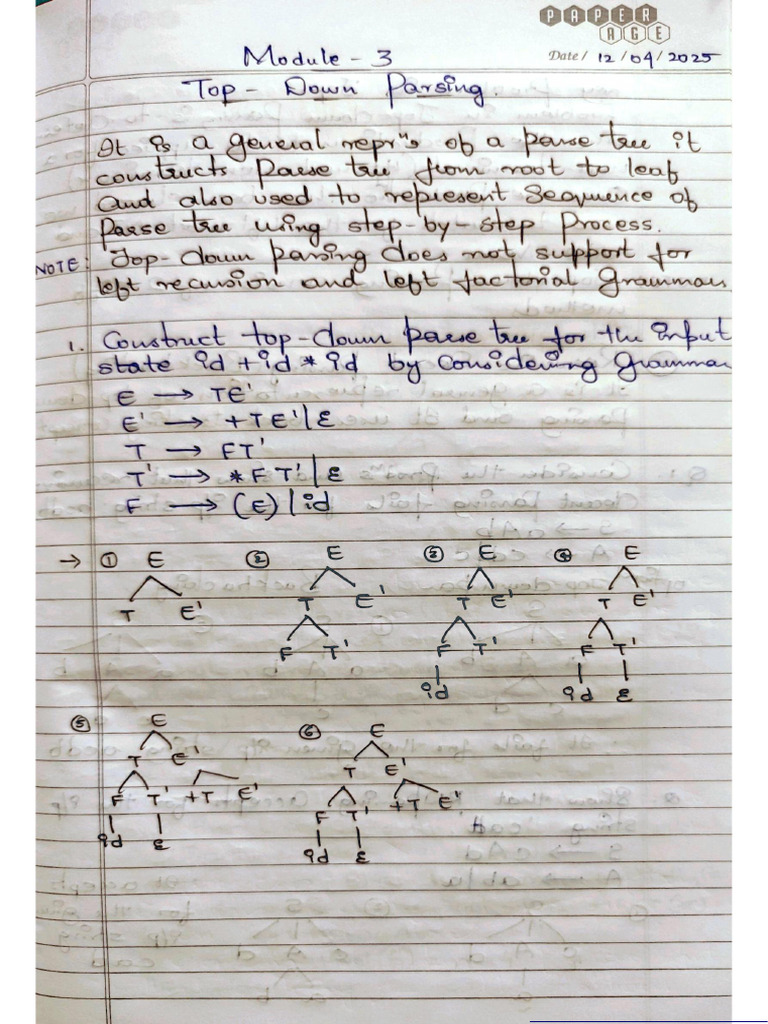 PAPER
AGE
Date / 12 / 04 / 2025
Module - 3
Top - Down Parsing.
It is a general reprⁿs of a parse tree it
constructs Parse tree from root to leaf
and also used to represent Sequence of
Parse tree using step-by-step Process.
NOTE: Top-down parsing does not support for
left recursion and left factorial Grammars
1. Construct top-down parse tree for the input
state id + id * id by Considering Grammar
E → TE'
E' → +TE'|ε
T → FT'
T' → *FT'|ε
F → (E)|id
→ ① E ② E ③ E ④ E
T E' T E' T E' T E'
F T' F T' F T'
id id ε
⑤ E ⑥ E
T E' T E'
F T' +T E' F T' +T E'
id ε id ε